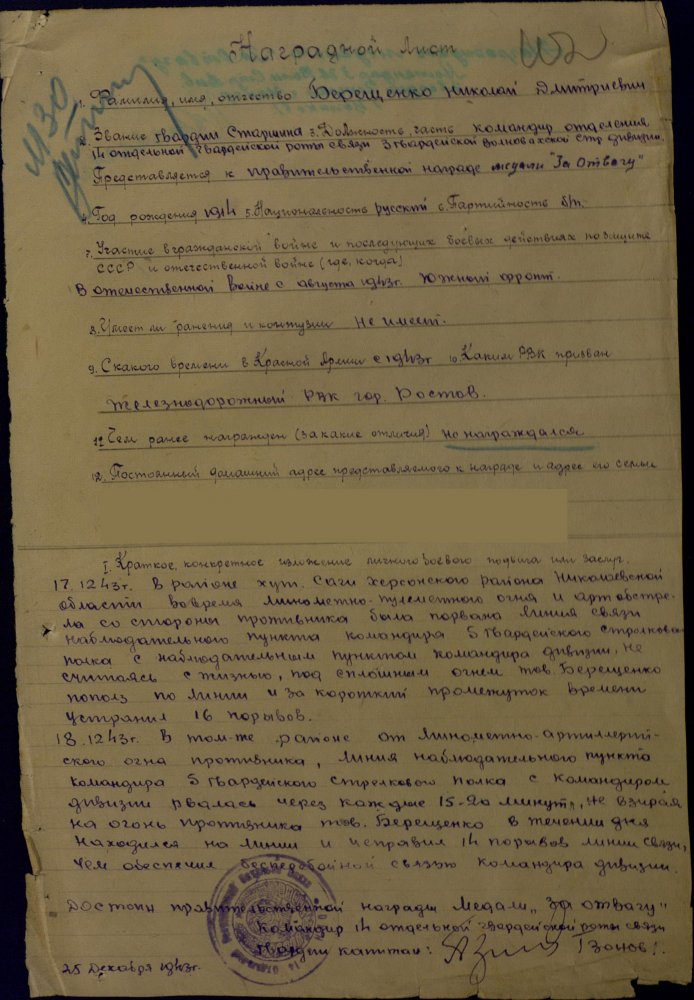 Наградной лист
1. Фамилия, имя, отчество Берещенко Николай Дмитриевич
2. Звание гвардии Старшина 3. Должность, часть командир отделения
14 отдельной гвардейской роты связи 3 гвардейской Волновахской стр. дивизии.
Представляется к правительственной награде медали "За Отвагу"
4. Год рождения 1914 5. Национальность русский 6. Партийность б/п.
7. Участие в гражданской войне и последующих боевых действиях по защите
СССР и отечественной войне (где, когда)
В отечественной Войне с августа 1943г. Южный фронт.
8. Имеет ли ранения и контузии Не имеет.
9. С какого времени в Красной Армии с 1943г 10. Каким РВК призван
Железнодорожный РВК гор. Ростов.
11. Чем ранее награжден (за какие отличия) не награждался
12. Постоянный домашний адрес представляемого к награде и адрес его семьи
I. Краткое, конкретное изложение личного боевого подвига или заслуг.
17.12.43г. В районе хут. Саги Херсонского района Николаевской
области вовремя минометно-пулеметного огня и артобстре-
ла со стороны противника была порвана линия связи
наблюдательного пункта командира 5 гвардейского стрелково
полка с наблюдательным пунктом командира дивизии, не
считаясь с жизнью, под сплошным огнем тов. Берещенко
пополз по линии и за короткий промежуток времени
устранил 16 порывов.
18.12.43г. В том-же районе от минометно-артиллерий-
ского огня противника, линия наблюдательного пункта
командира 5 гвардейского стрелкового полка с командиром
дивизии рвалась через каждые 15-20 минут, не взирая
на огонь противника тов. Берещенко в течении дня
находился на линии и исправил 14 порывов линии связи,
чем обеспечил бесперебойной связью командира дивизии.
Достоин правительственной награды Медали „За отвагу"
Командир 14 отдельной гвардейской роты связи
гвардии капитан:
25 Декабря 1943г.